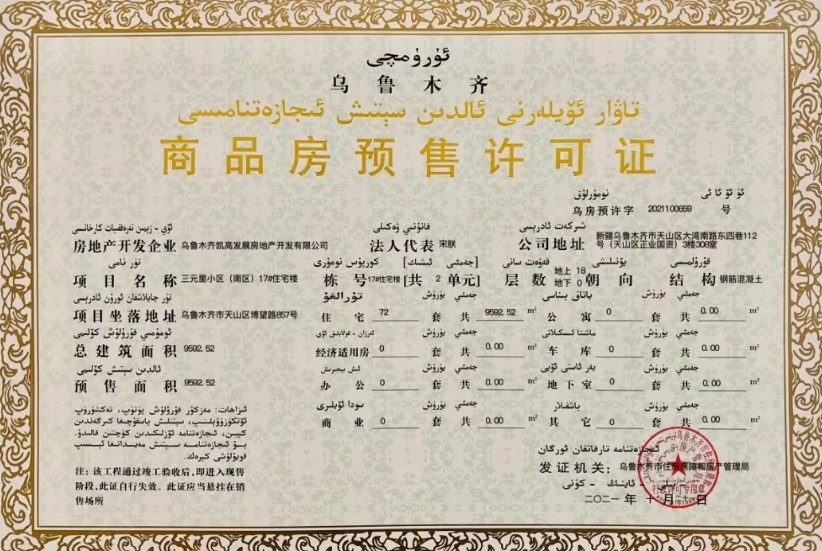 ئۈرۈمچى
乌鲁木齐
تاۋار ئۆيلەرنى ئالدىن سېتىش ئىجازەتنامىسى
商品房预售许可证
نومۇرلۇق
乌房预许字 2021100659 号
ئۆي - زېمىن تەرەققىيات كارخانىسى قانۇنىي ۋەكىلى شىركەت ئادرېسى
房地产开发企业 乌鲁木齐凯高发展房地产开发有限公司 法人代表 宋朕 公司地址 新疆乌鲁木齐市天山区大湾南路东四巷112号（天山区正业国资）3楼308室
تۈر نامى كورپۇس نومۇرى [جەمئىي ئىشىك] قەۋەت سانى يۆنىلىشى قۇرۇلمىسى
项目名称 三元里小区（南区）17#住宅楼 栋号 17#住宅楼 [共 2 单元] 层数 地上 18 地下 0 朝向 结构 钢筋混凝土
تۈر جايلاشقان ئورۇن ئادرېسى تۇرالغۇ جەمئىي يۈرۈش جەمئىي يۈرۈش
项目坐落地址 乌鲁木齐市天山区博望路857号 住宅 72 套 共 9592.52 m² 公寓 0 套 共 0.00 m²
ئومۇمىي قۇرۇلۇش كۆلىمى جەمئىي يۈرۈش جەمئىي يۈرۈش
总建筑面积 9592.52 经济适用房 0 套 共 0.00 m² 车库 0 套 共 0.00 m²
ئالدىن سېتىش كۆلىمى ئىش بېجىرىش جەمئىي يۈرۈش جەمئىي يۈرۈش
预售面积 9592.52 办公 0 套 共 0.00 m² 地下室 0 套 共 0.00 m²
سودا ئۆيلىرى جەمئىي يۈرۈش باشقىلار جەمئىي يۈرۈش
商业 0 套 共 0.00 m² 其它 0 套 共 0.00 m²
注：该工程通过竣工验收后，即进入现售
阶段，此证自行失效。此证应当悬挂在销
售场所
ئىجازەتنامە تارقاتقان ئورگان
发证机关：乌鲁木齐市住房保障和房产管理局
二〇二一年 十 月 日